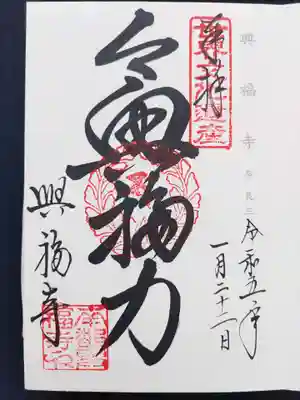 興福寺 奈良
奉拝
令和五年
一月二十二日
令興福力
興福寺